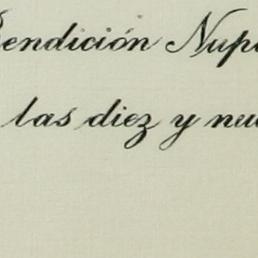 Bendición Nup
las diez y nu